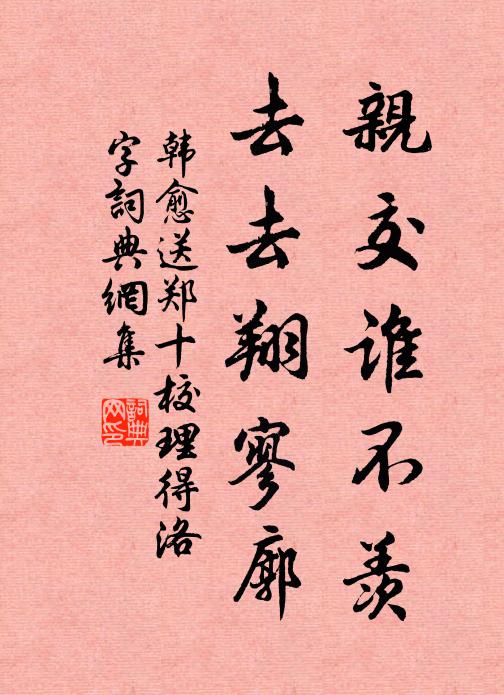 親交誰不羨
去去翔寥廓
韩愈送郑十校理得洛
字詞典網集
詞典网印